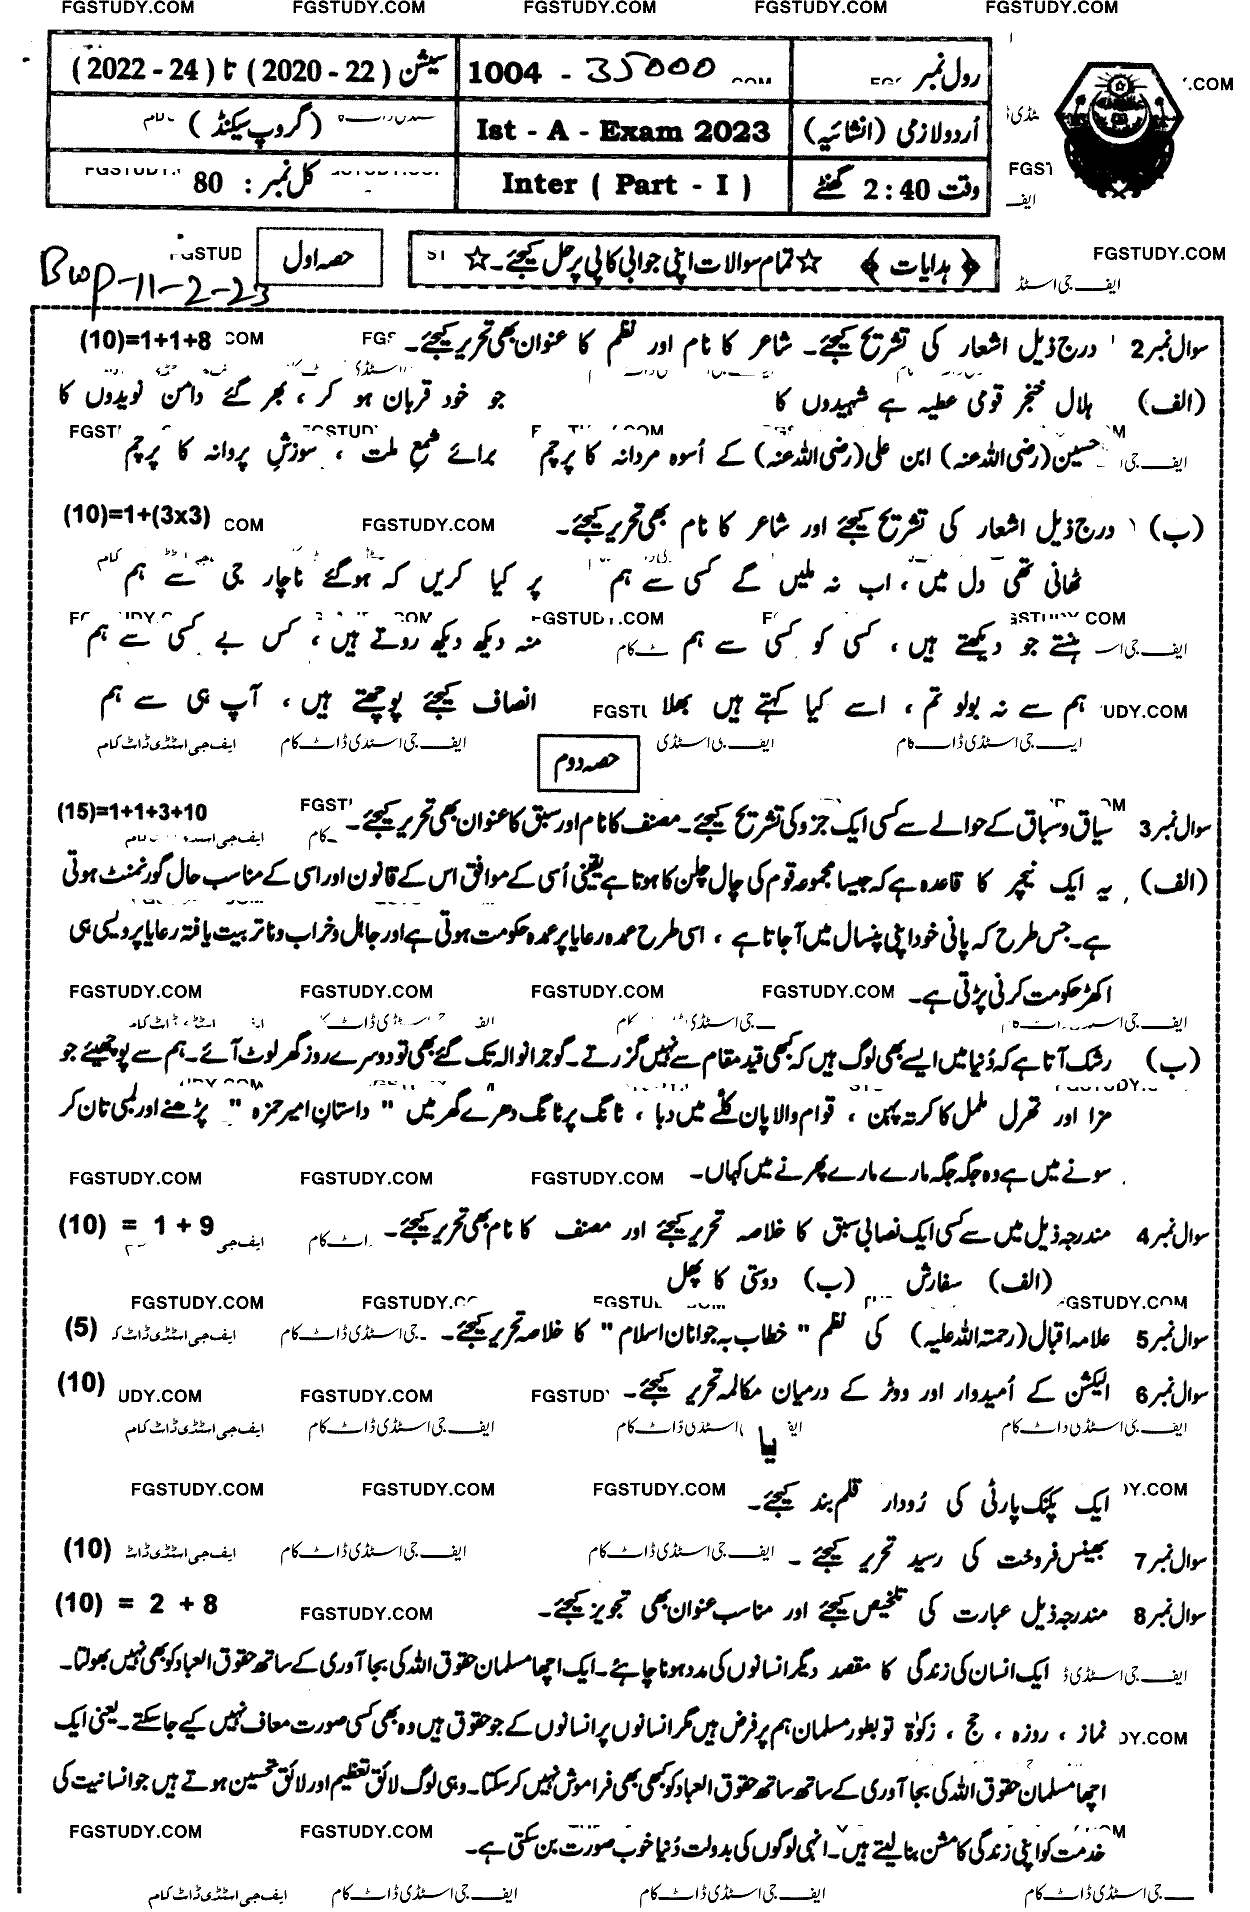 FGSTUDY.COM FGSTUDY.COM FGSTUDY.COM FGSTUDY.COM FGSTUDY.COM
رول نمبر 1004 - 35000 سیشن (2020 - 22) تا (2022 - 24)
اُردو لازمی (انشائیہ) Ist - A - Exam 2023 (گروپ سیکنڈ)
وقت 2:40 گھنٹے Inter ( Part - I ) کل نمبر : 80
﴿ ہدایات ﴾ ☆ تمام سوالات اپنی جوابی کاپی پر حل کیجئے۔ ☆ حصہ اول
FGSTUDY.COM
Bwp-11-2-23
سوال نمبر 2 درج ذیل اشعار کی تشریح کیجئے۔ شاعر کا نام اور نظم کا عنوان بھی تحریر کیجئے۔ (10)=1+1+8
(الف) ہلال خنجر قومی عطیہ ہے شہیدوں کا جو خود قربان ہو کر ، بھر گئے دامن نویدوں کا
حسین(رضی اللہ عنہ) ابن علی(رضی اللہ عنہ) کے اُسوہ مردانہ کا پرچم برائے شمع ملت ، سوزشِ پروانہ کا پرچم
(ب) درج ذیل اشعار کی تشریح کیجئے اور شاعر کا نام بھی تحریر کیجئے۔ (10)=1+(3x3)
FGSTUDY.COM
ٹھانی تھی دل میں ، اب نہ ملیں گے کسی سے ہم پر کیا کریں کہ ہوگئے ناچار جی سے ہم
ہنستے جو دیکھتے ہیں ، کسی کو کسی سے ہم منہ دیکھ دیکھ روتے ہیں ، کس بے کسی سے ہم
ہم سے نہ بولو تم ، اسے کیا کہتے ہیں بھلا انصاف کیجئے پوچھتے ہیں ، آپ ہی سے ہم
حصہ دوم
سوال نمبر 3 سیاق و سباق کے حوالے سے کسی ایک جزو کی تشریح کیجئے۔ مصنف کا نام اور سبق کا عنوان بھی تحریر کیجئے۔ (15)=1+1+3+10
(الف) یہ ایک نیچر کا قاعدہ ہے کہ جیسا مجموعہ قوم کی چال چلن کا ہوتا ہے یعنی اُسی کے موافق اس کے قانون اور اسی کے مناسب حال گورنمنٹ ہوتی
ہے۔ جس طرح کہ پانی خود اپنی پنسال میں آجاتا ہے ، اسی طرح عمدہ رعایا پر عمدہ حکومت ہوتی ہے اور جاہل و خراب و ناتربیت یافتہ رعایا پر ویسی ہی
اکھڑ حکومت کرنی پڑتی ہے۔
FGSTUDY.COM FGSTUDY.COM FGSTUDY.COM FGSTUDY.COM
(ب) رشک آتا ہے کہ دُنیا میں ایسے بھی لوگ ہیں کہ کبھی قید مقام سے نہیں گزرتے۔ گوجرانوالہ تک گئے بھی تو دوسرے روز گھر لوٹ آئے۔ ہم سے پوچھئے جو
مزا اور تھرل ململ کا کرتہ پہن ، قوام والا پان کلّے میں دبا ، ٹانگ پر ٹانگ دھرے گھر میں " داستانِ امیر حمزہ " پڑھنے اور لمبی تان کر
سونے میں ہے وہ جگہ جگہ مارے مارے پھرنے میں کہاں۔
FGSTUDY.COM FGSTUDY.COM FGSTUDY.COM
سوال نمبر 4 مندرجہ ذیل میں سے کسی ایک نصابی سبق کا خلاصہ تحریر کیجئے اور مصنف کا نام بھی تحریر کیجئے۔ (10) = 1 + 9
(الف) سفارش (ب) دوستی کا پھل
سوال نمبر 5 علامہ اقبال(رحمۃ اللہ علیہ) کی نظم " خطاب بہ جوانان اسلام " کا خلاصہ تحریر کیجئے۔ (5)
سوال نمبر 6 الیکشن کے اُمیدوار اور ووٹر کے درمیان مکالمہ تحریر کیجئے۔ (10)
یا
ایک پکنک پارٹی کی رُوداد قلم بند کیجئے۔
FGSTUDY.COM FGSTUDY.COM FGSTUDY.COM
سوال نمبر 7 بھینس فروخت کی رسید تحریر کیجئے ۔ (10)
سوال نمبر 8 مندرجہ ذیل عبارت کی تلخیص کیجئے اور مناسب عنوان بھی تجویز کیجئے۔ (10) = 2 + 8
ایک انسان کی زندگی کا مقصد دیگر انسانوں کی مدد ہونا چاہئے۔ ایک اچھا مسلمان حقوق اللہ کی بجا آوری کے ساتھ حقوق العباد کو بھی نہیں بھولتا۔
نماز ، روزہ ، حج ، زکوٰۃ تو بطور مسلمان ہم پر فرض ہیں مگر انسانوں پر انسانوں کے جو حقوق ہیں وہ بھی کسی صورت معاف نہیں کیے جا سکتے۔ یعنی ایک
اچھا مسلمان حقوق اللہ کی بجا آوری کے ساتھ ساتھ حقوق العباد کو کبھی بھی فراموش نہیں کر سکتا۔ وہی لوگ لائق تعظیم اور لائق تحسین ہوتے ہیں جو انسانیت کی
خدمت کو اپنی زندگی کا مشن بنا لیتے ہیں۔ انہی لوگوں کی بدولت دُنیا خوب صورت بن سکتی ہے۔
FGSTUDY.COM FGSTUDY.COM
ایف جی اسٹڈی ڈاٹ کام ایف جی اسٹڈی ڈاٹ کام ایف جی اسٹڈی ڈاٹ کام